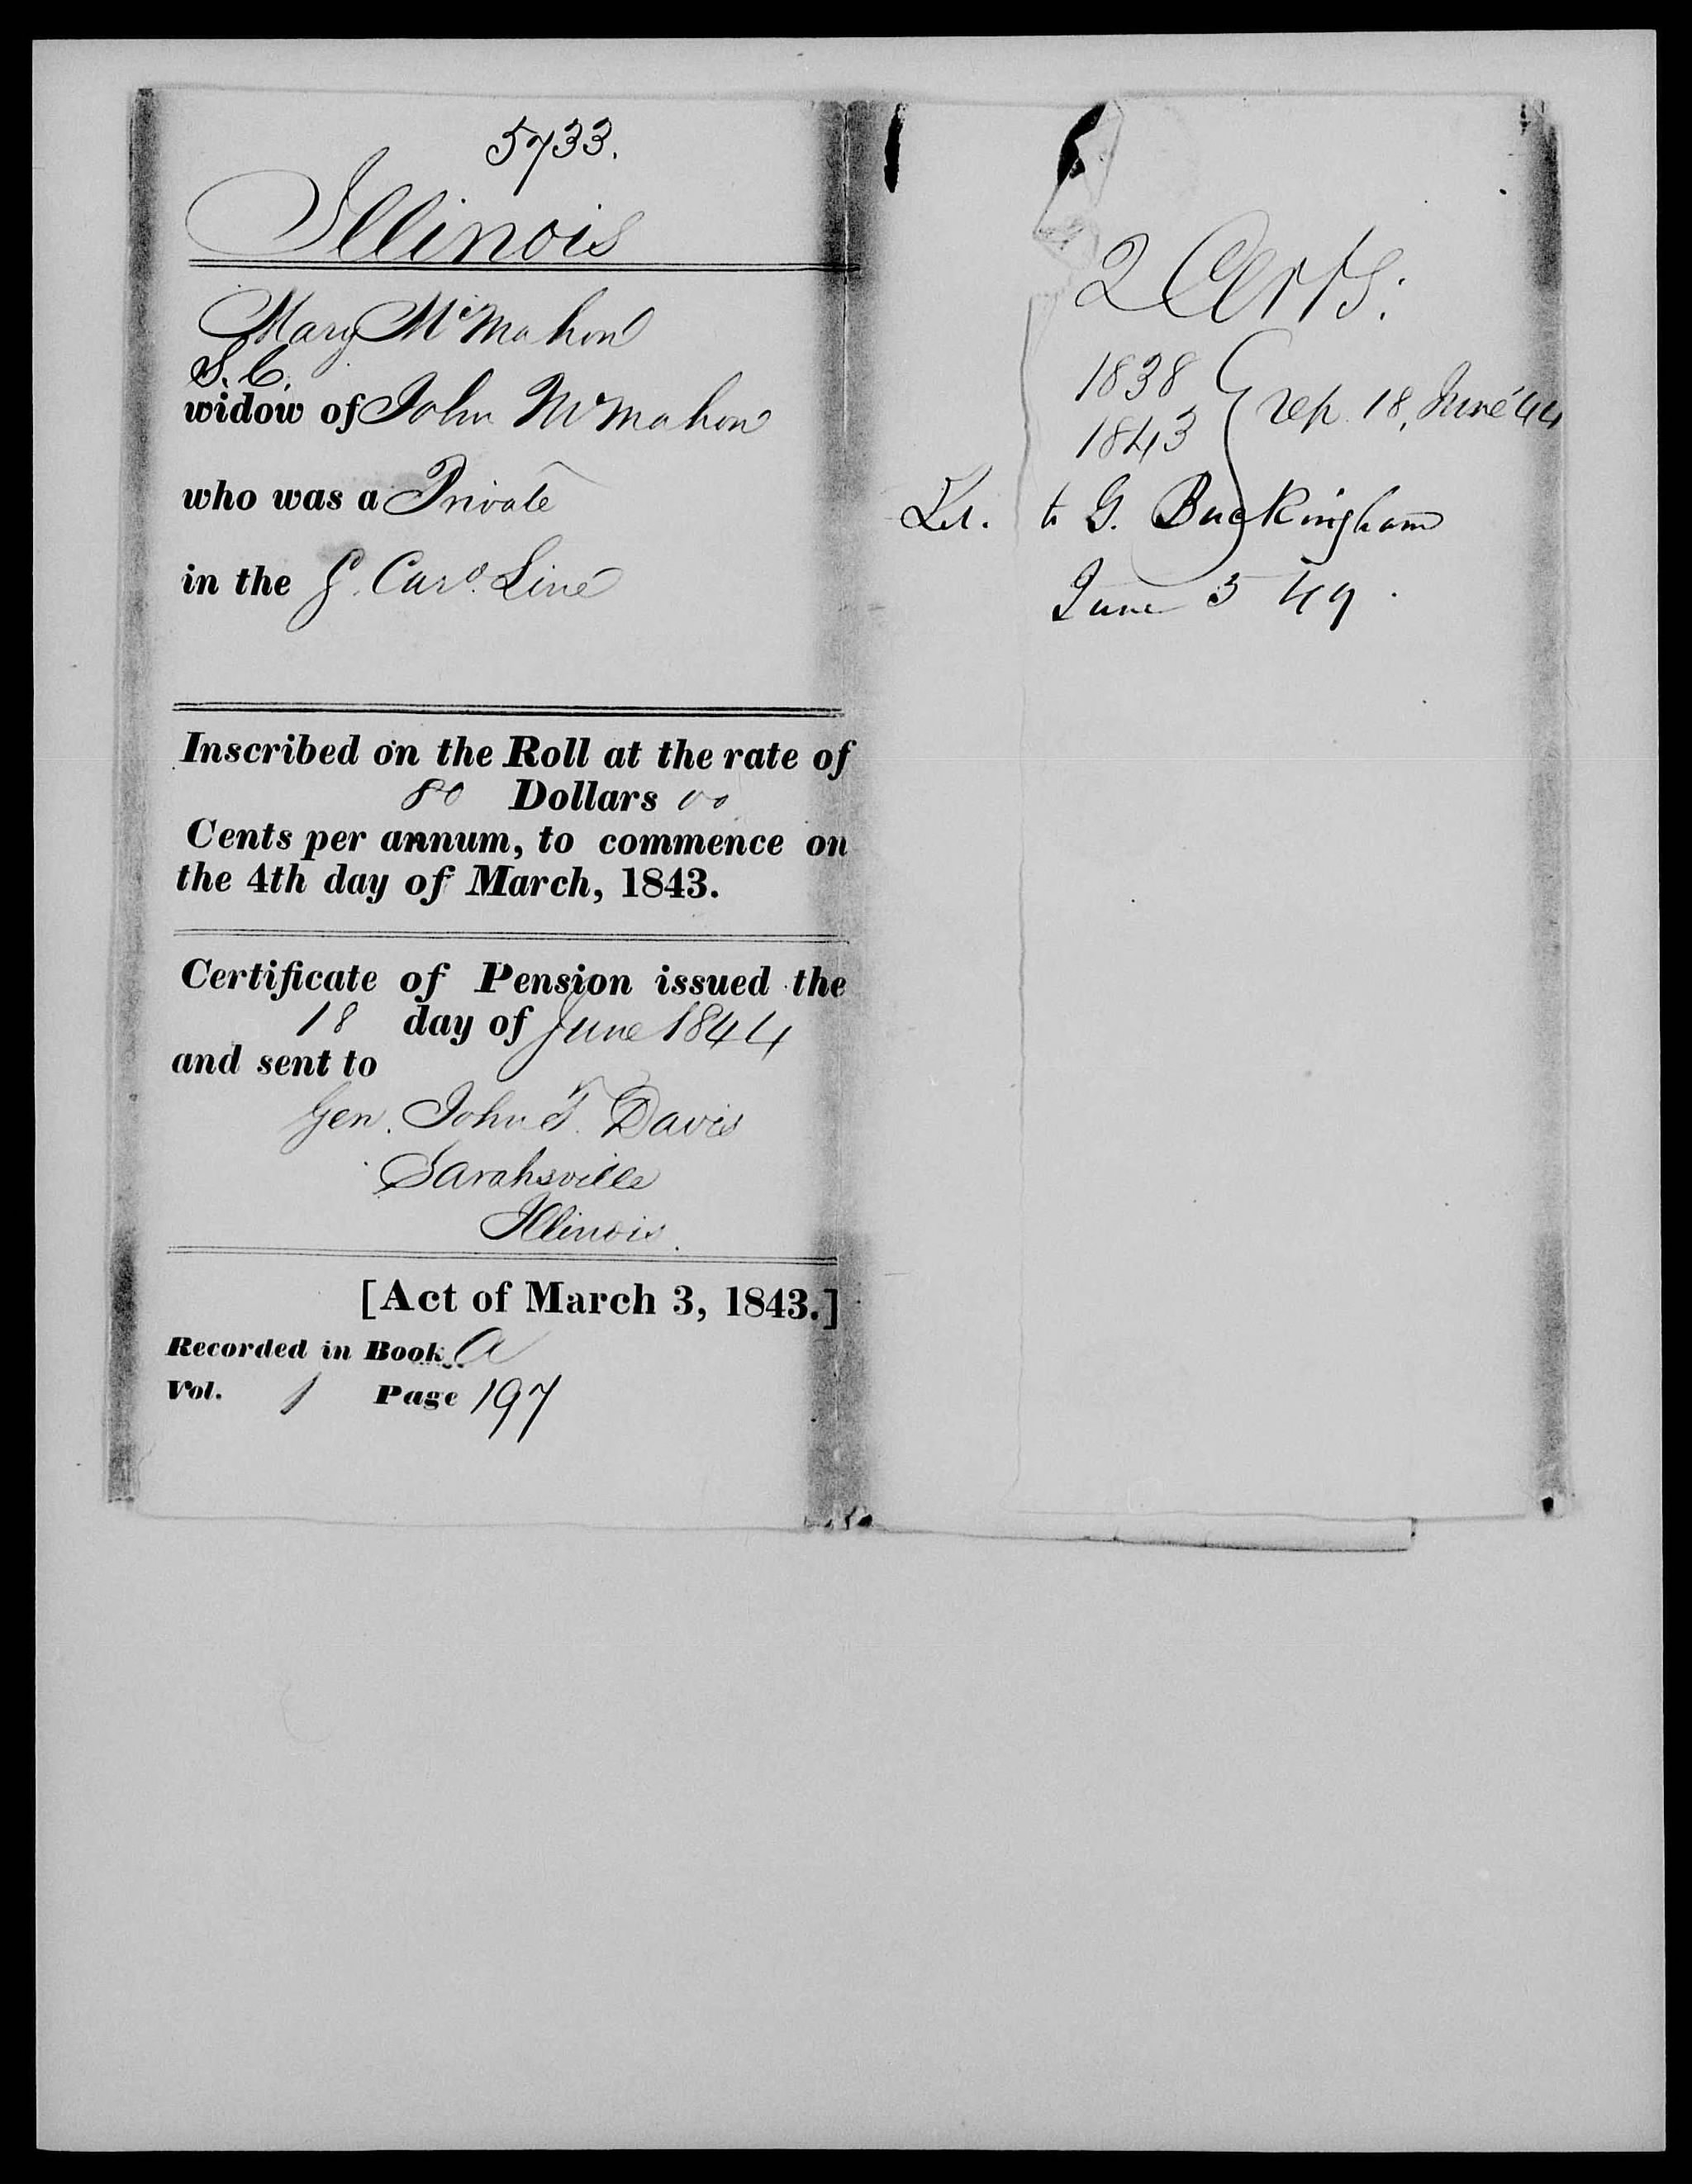 5733.
Illinois
Mary McMahon
S.C.
widow of John McMahon
who was a Private
in the S. Caro. Line
Inscribed on the Roll at the rate of
80 Dollars 00
Cents per annum, to commence on
the 4th day of March, 1843.
Certificate of Pension issued the
18 day of June 1844
and sent to
Gen. John T. Davis
Sarahsville
Illinois.
[Act of March 3, 1843.]
Recorded in Book A
Vol. 1 Page 197
2 Certs.
1838
1843 rep. 18, June '44
Let. to G. Buckingham
June 5 49.